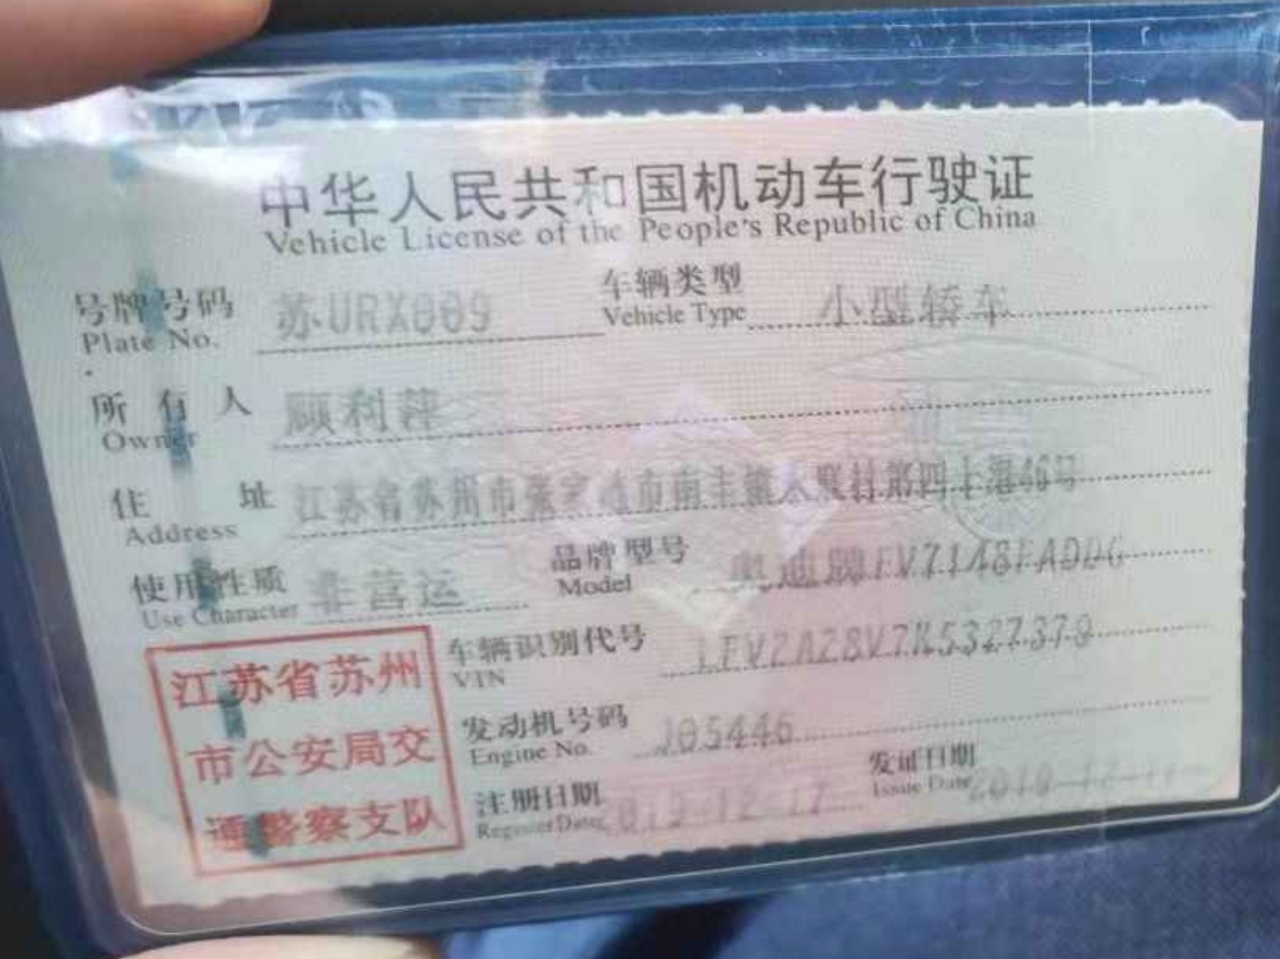 中华人民共和国机动车行驶证
Vehicle License of the People's Republic of China
号牌号码 苏URX009 车辆类型 小型轿车
Plate No. Vehicle Type
所有人 顾利萍
Owner
住址 江苏省苏州市张家港市南丰镇永联村第四十港46号
Address
使用性质 非营运 品牌型号 奥迪牌FV7148FADDG
Use Character Model
车辆识别代号
VIN
发动机号码 J05446
Engine No.
注册日期 2019-12-17 发证日期
Register Date Issue Date
江苏省苏州
市公安局交
通警察支队